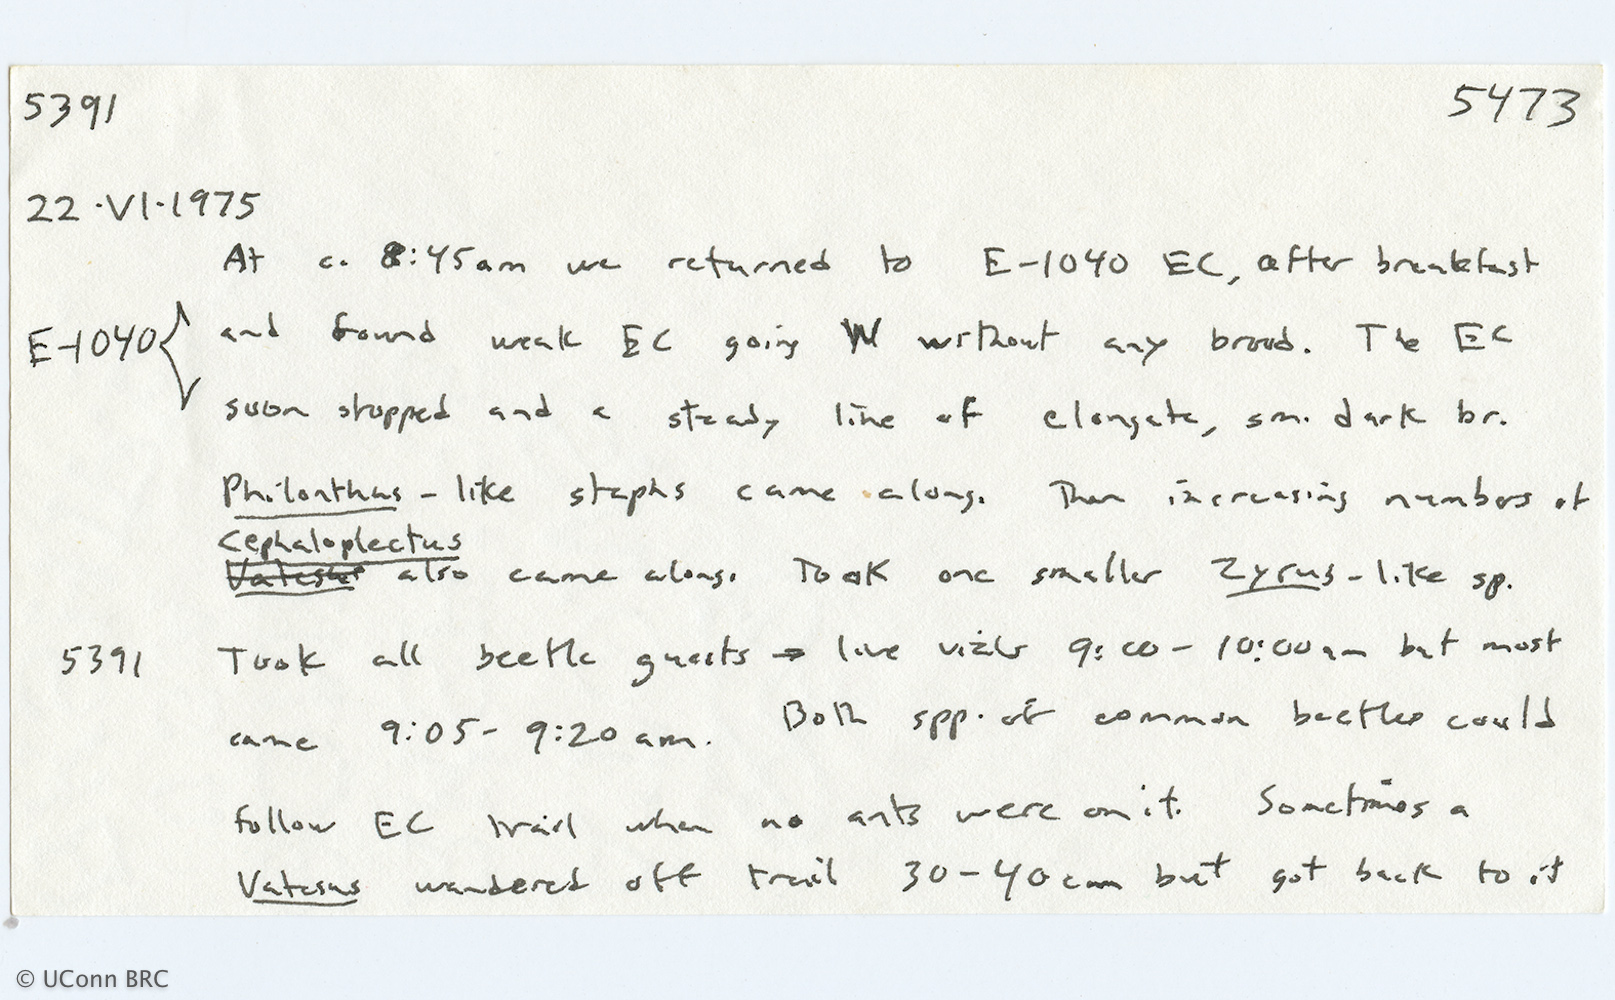 5391 5473
22·VI·1975
At c. 8:45am we returned to E-1040 EC, after breakfast
E-1040 and found weak EC going W without any brood. The EC
soon stopped and a steady line of elongate, sm. dark br.
Philonthus-like staphs came along. Then increasing numbers of
Cephaloplectus
Vatesus also came along. Took one smaller Zyrus-like sp.
5391 Took all beetle guests → live vials 9:00-10:00am but most
came 9:05-9:20am. Both spp. of common beetles could
follow EC trail when no ants were on it. Sometimes a
Vatesus wandered off trail 30-40cm but got back to it
© UConn BRC